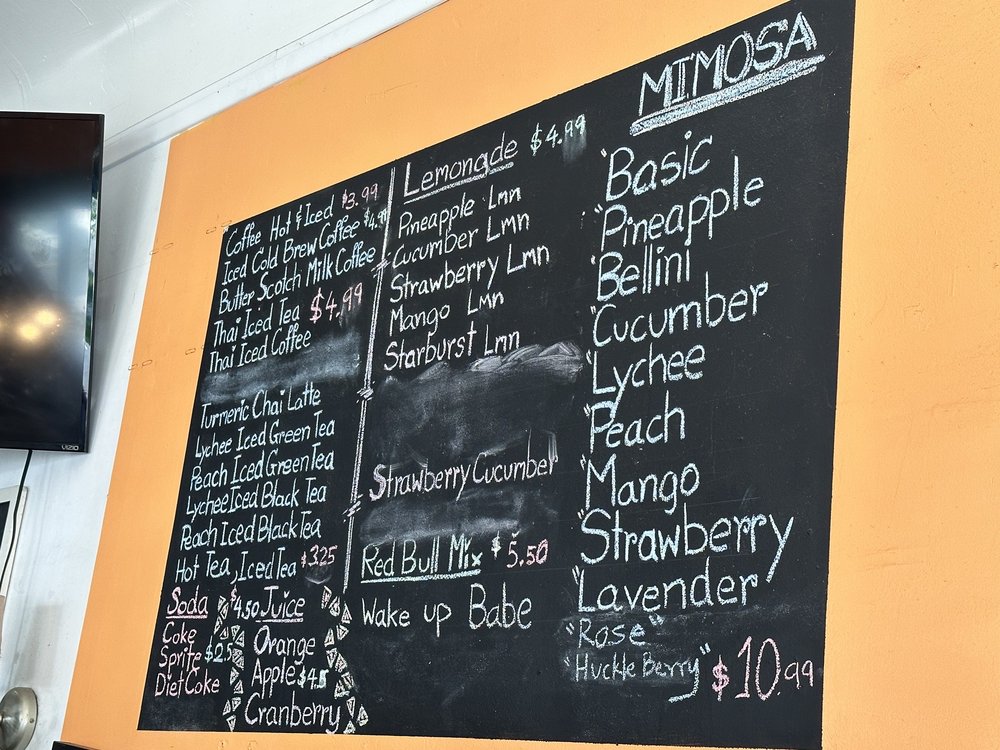 Coffee Hot & Iced $3.99
Iced Cold Brew Coffee $4.99
Butter Scotch Milk Coffee
Thai Iced Tea $4.99
Thai Iced Coffee
Turmeric Chai Latte
Lychee Iced Green Tea
Peach Iced Green Tea
Lychee Iced Black Tea
Peach Iced Black Tea
Hot Tea, Iced Tea $3.25
Soda
Coke
Sprite $2.5
Diet Coke
$4.50 Juice
Orange
Apple $4.5
Cranberry
Lemonade $4.99
Pineapple Lmn
Cucumber Lmn
Strawberry Lmn
Mango Lmn
Starburst Lmn
Strawberry Cucumber
Red Bull Mix $5.50
Wake up Babe
MIMOSA
"Basic
"Pineapple
"Bellini
"Cucumber
"Lychee
"Peach
"Mango
"Strawberry
"Lavender
"Rose"
"Huckle Berry" $10.99
VIZIO